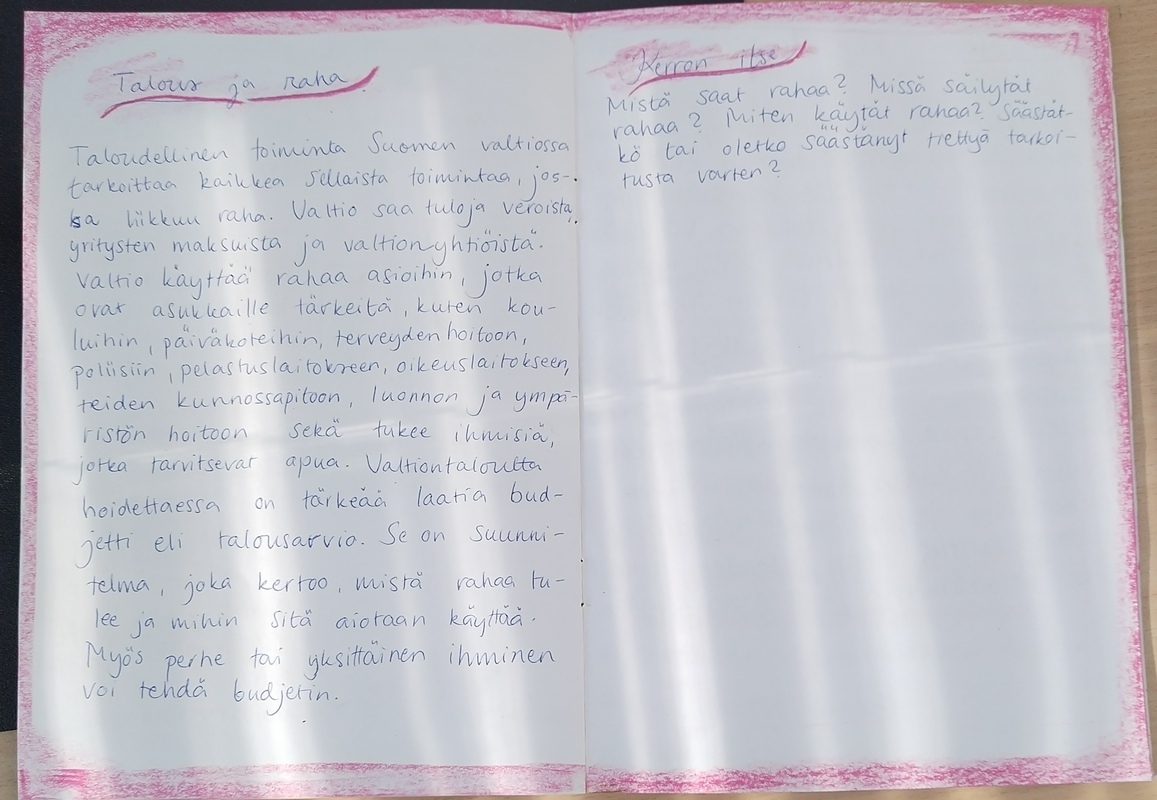 Talous ja raha
Taloudellinen toiminta Suomen valtiossa
tarkoittaa kaikkea sellaista toimintaa, jos-
sa liikkuu raha. Valtio saa tuloja veroista,
yritysten maksuista ja valtionyhtiöistä.
Valtio käyttää rahaa asioihin, jotka
ovat asukkaille tärkeitä, kuten kou-
luihin, päiväkoteihin, terveydenhoitoon,
poliisiin, pelastuslaitokseen, oikeuslaitokseen,
teiden kunnossapitoon, luonnon ja ympä-
ristön hoitoon sekä tukee ihmisiä,
jotka tarvitsevat apua. Valtiontaloutta
hoidettaessa on tärkeää laatia bud-
jetti eli talousarvio. Se on suunni-
telma, joka kertoo, mistä rahaa tu-
lee ja mihin sitä aiotaan käyttää.
Myös perhe tai yksittäinen ihminen
voi tehdä budjetin.
Kerron itse
Mistä saat rahaa? Missä säilytät
rahaa? Miten käytät rahaa? Säästät-
kö tai oletko säästänyt tiettyä tarkoi-
tusta varten?